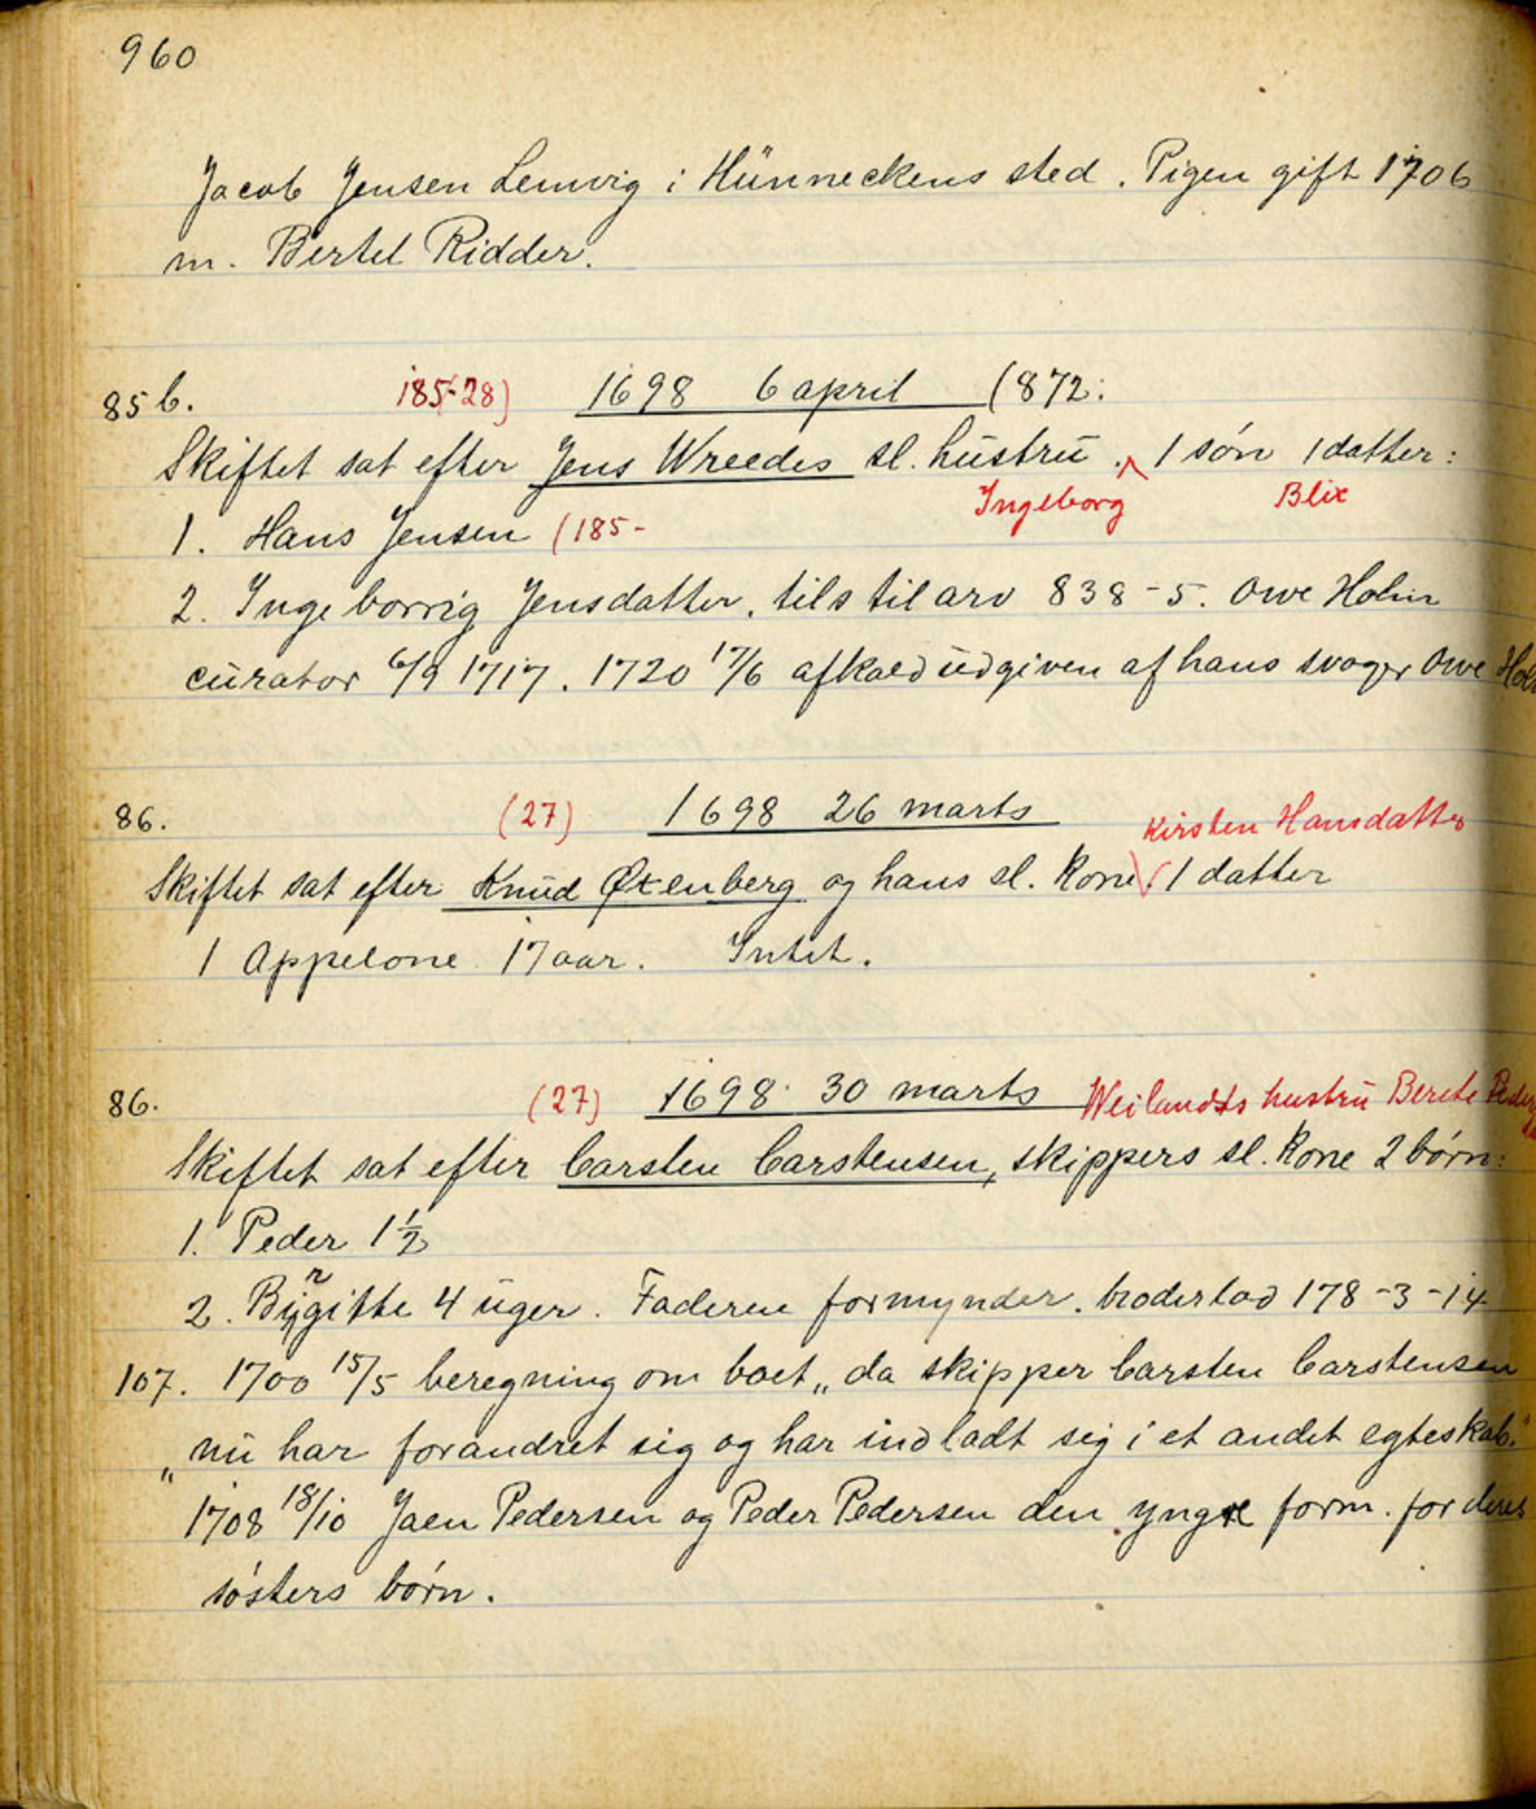 960
Jacob Jensen Lemvig i Hünneckens sted. Pigen gift 1706
m. Bertel Ridder.
85 b. 185-28) 1698 6 april (872:
Skiftet sat efter Jens Wreedes sl. hústrú. ^ 1 søn 1 datter:
Ingeborg Blix
1. Hans Jensen (185-
2. Ingeborrig Jensdatter. tilstil arv 838-5. Owe Holm
cúrator 6/9 1717. 1720 17/6 afkald údgiven af hans svoger Owe Holm
86. (27) 1698 26 marts Kirsten Hansdatter
Skiftet sat efter Knúd Øxenberg og hans sl. Kone. 1 datter
1 Appelone 17 aar. Intet.
86. (27) 1698 30 marts Weilandts hustrú Berete
Skiftet sat efter Carsten Carstensen, skippers sl. Kone 2 børn:
1. Peder 1 1/2
2. Byrgitte 4 úger. Faderen formynder. broderlod 178-3-14
107. 1700 15/5 beregning om boet „da skipper Carsten Carstensen
„nú har forandret sig og har indladt sig i et andet egteskab."
1708 18/10 Jaen Pedersen og Peder Pedersen den yngre form. for deres
søsters børn.